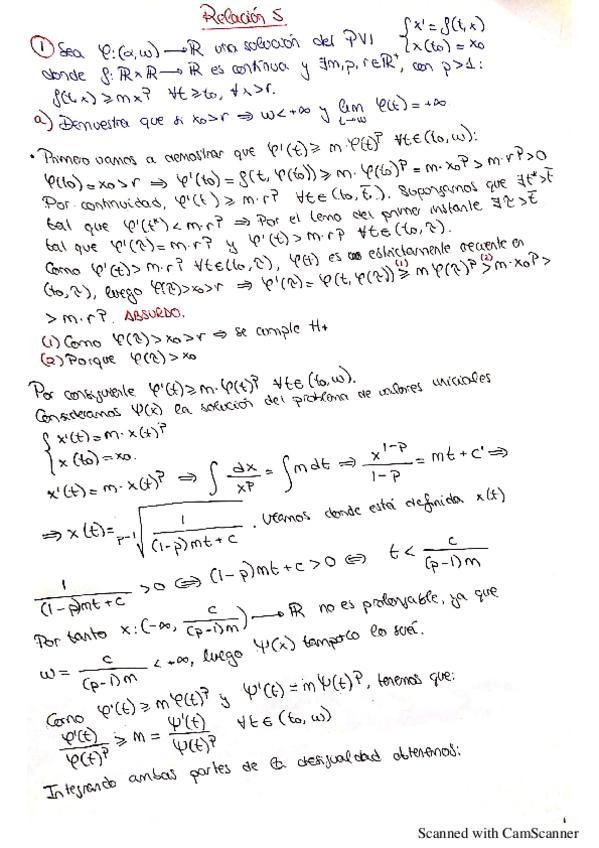 Relación 5
① Sea φ:(α,ω)→ℝ una solución del PVI { x' = f(t,x)
{ x(t₀) = x₀
donde f: ℝxℝ→ℝ es continua y ∃m,p,r∈ℝ⁺, con p>1:
f(t,x) ≥ m x^p ∀t≥t₀, ∀x>r.
a) Demuestra que si x₀>r ⇒ ω<+∞ y lim φ(t)=+∞
t→ω
• Primero vamos a demostrar que φ'(t) ≥ m·φ(t)^p ∀t∈(t₀,ω):
φ(t₀)=x₀>r ⇒ φ'(t₀)=f(t₀,φ(t₀)) ≥ m·φ(t₀)^p = m·x₀^p > m·r^p > 0
Por continuidad, φ'(t) ≥ m·r^p ∀t∈(t₀,t̄). Supongamos que ∃t*>t̄
tal que φ'(t*) < m·r^p ⇒ Por el lema del primer instante ∃τ>t̄
tal que φ'(τ)=m·r^p y φ'(t)>m·r^p ∀t∈(t₀,τ).
Como φ'(t)>m·r^p ∀t∈(t₀,τ), φ(t) es estrictamente creciente en
(t₀,τ), luego φ(τ)>x₀>r ⇒ φ'(τ)=φ(t,φ(τ)) ≥⁽¹⁾ mφ(τ)^p >⁽²⁾ m·x₀^p >
> m·r^p. ABSURDO.
(1) Como φ(τ)>x₀>r ⇒ se cumple H+
(2) Porque φ(τ)>x₀
Por consiguiente φ'(t) ≥ m·φ(t)^p ∀t∈(t₀,ω).
Consideramos ψ(x) la solución del problema de valores iniciales
{ x'(t)=m·x(t)^p
{ x(t₀)=x₀.
x'(t)=m·x(t)^p ⇒ ∫ dx/x^p = ∫ m dt ⇒ x^(1-p)/(1-p) = mt+c' ⇒
⇒ x(t) = ^(p-1)√(1/((1-p)mt+c)). Veamos donde está definida x(t)
1/((1-p)mt+c) > 0 ⇔ (1-p)mt+c>0 ⇔ t < c/((p-1)m)
Por tanto x:(-∞, c/((p-1)m)) → ℝ no es prolongable, ya que
ω = c/((p-1)m) < +∞, luego ψ(x) tampoco lo será.
Como φ'(t) ≥ mφ(t)^p y ψ'(t)=mψ(t)^p, tenemos que:
φ'(t)/φ(t)^p ≥ m = ψ'(t)/ψ(t)^p ∀t∈(t₀,ω)
Integrando ambas partes de la desigualdad obtenemos:
Scanned with CamScanner